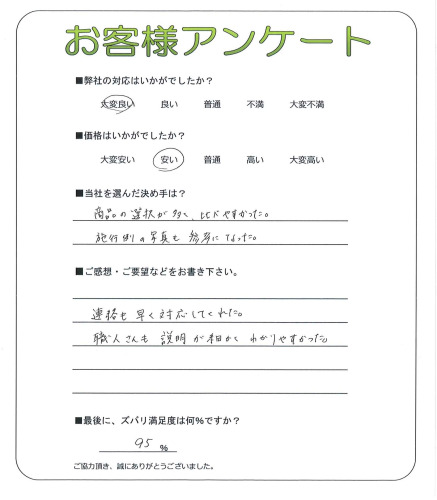 お客様アンケート
■弊社の対応はいかがでしたか?
大変良い 良い 普通 不満 大変不満
■価格はいかがでしたか?
大変安い 安い 普通 高い 大変高い
■当社を選んだ決め手は?
商品の選択が多く、比べやすかった。
施行例の写真も参考になった。
■ご感想・ご要望などをお書き下さい。
連絡も早く対応してくれた。
職人さんも説明が細かくわかりやすかった。
■最後に、ズバリ満足度は何%ですか?
95 %
ご協力頂き、誠にありがとうございました。